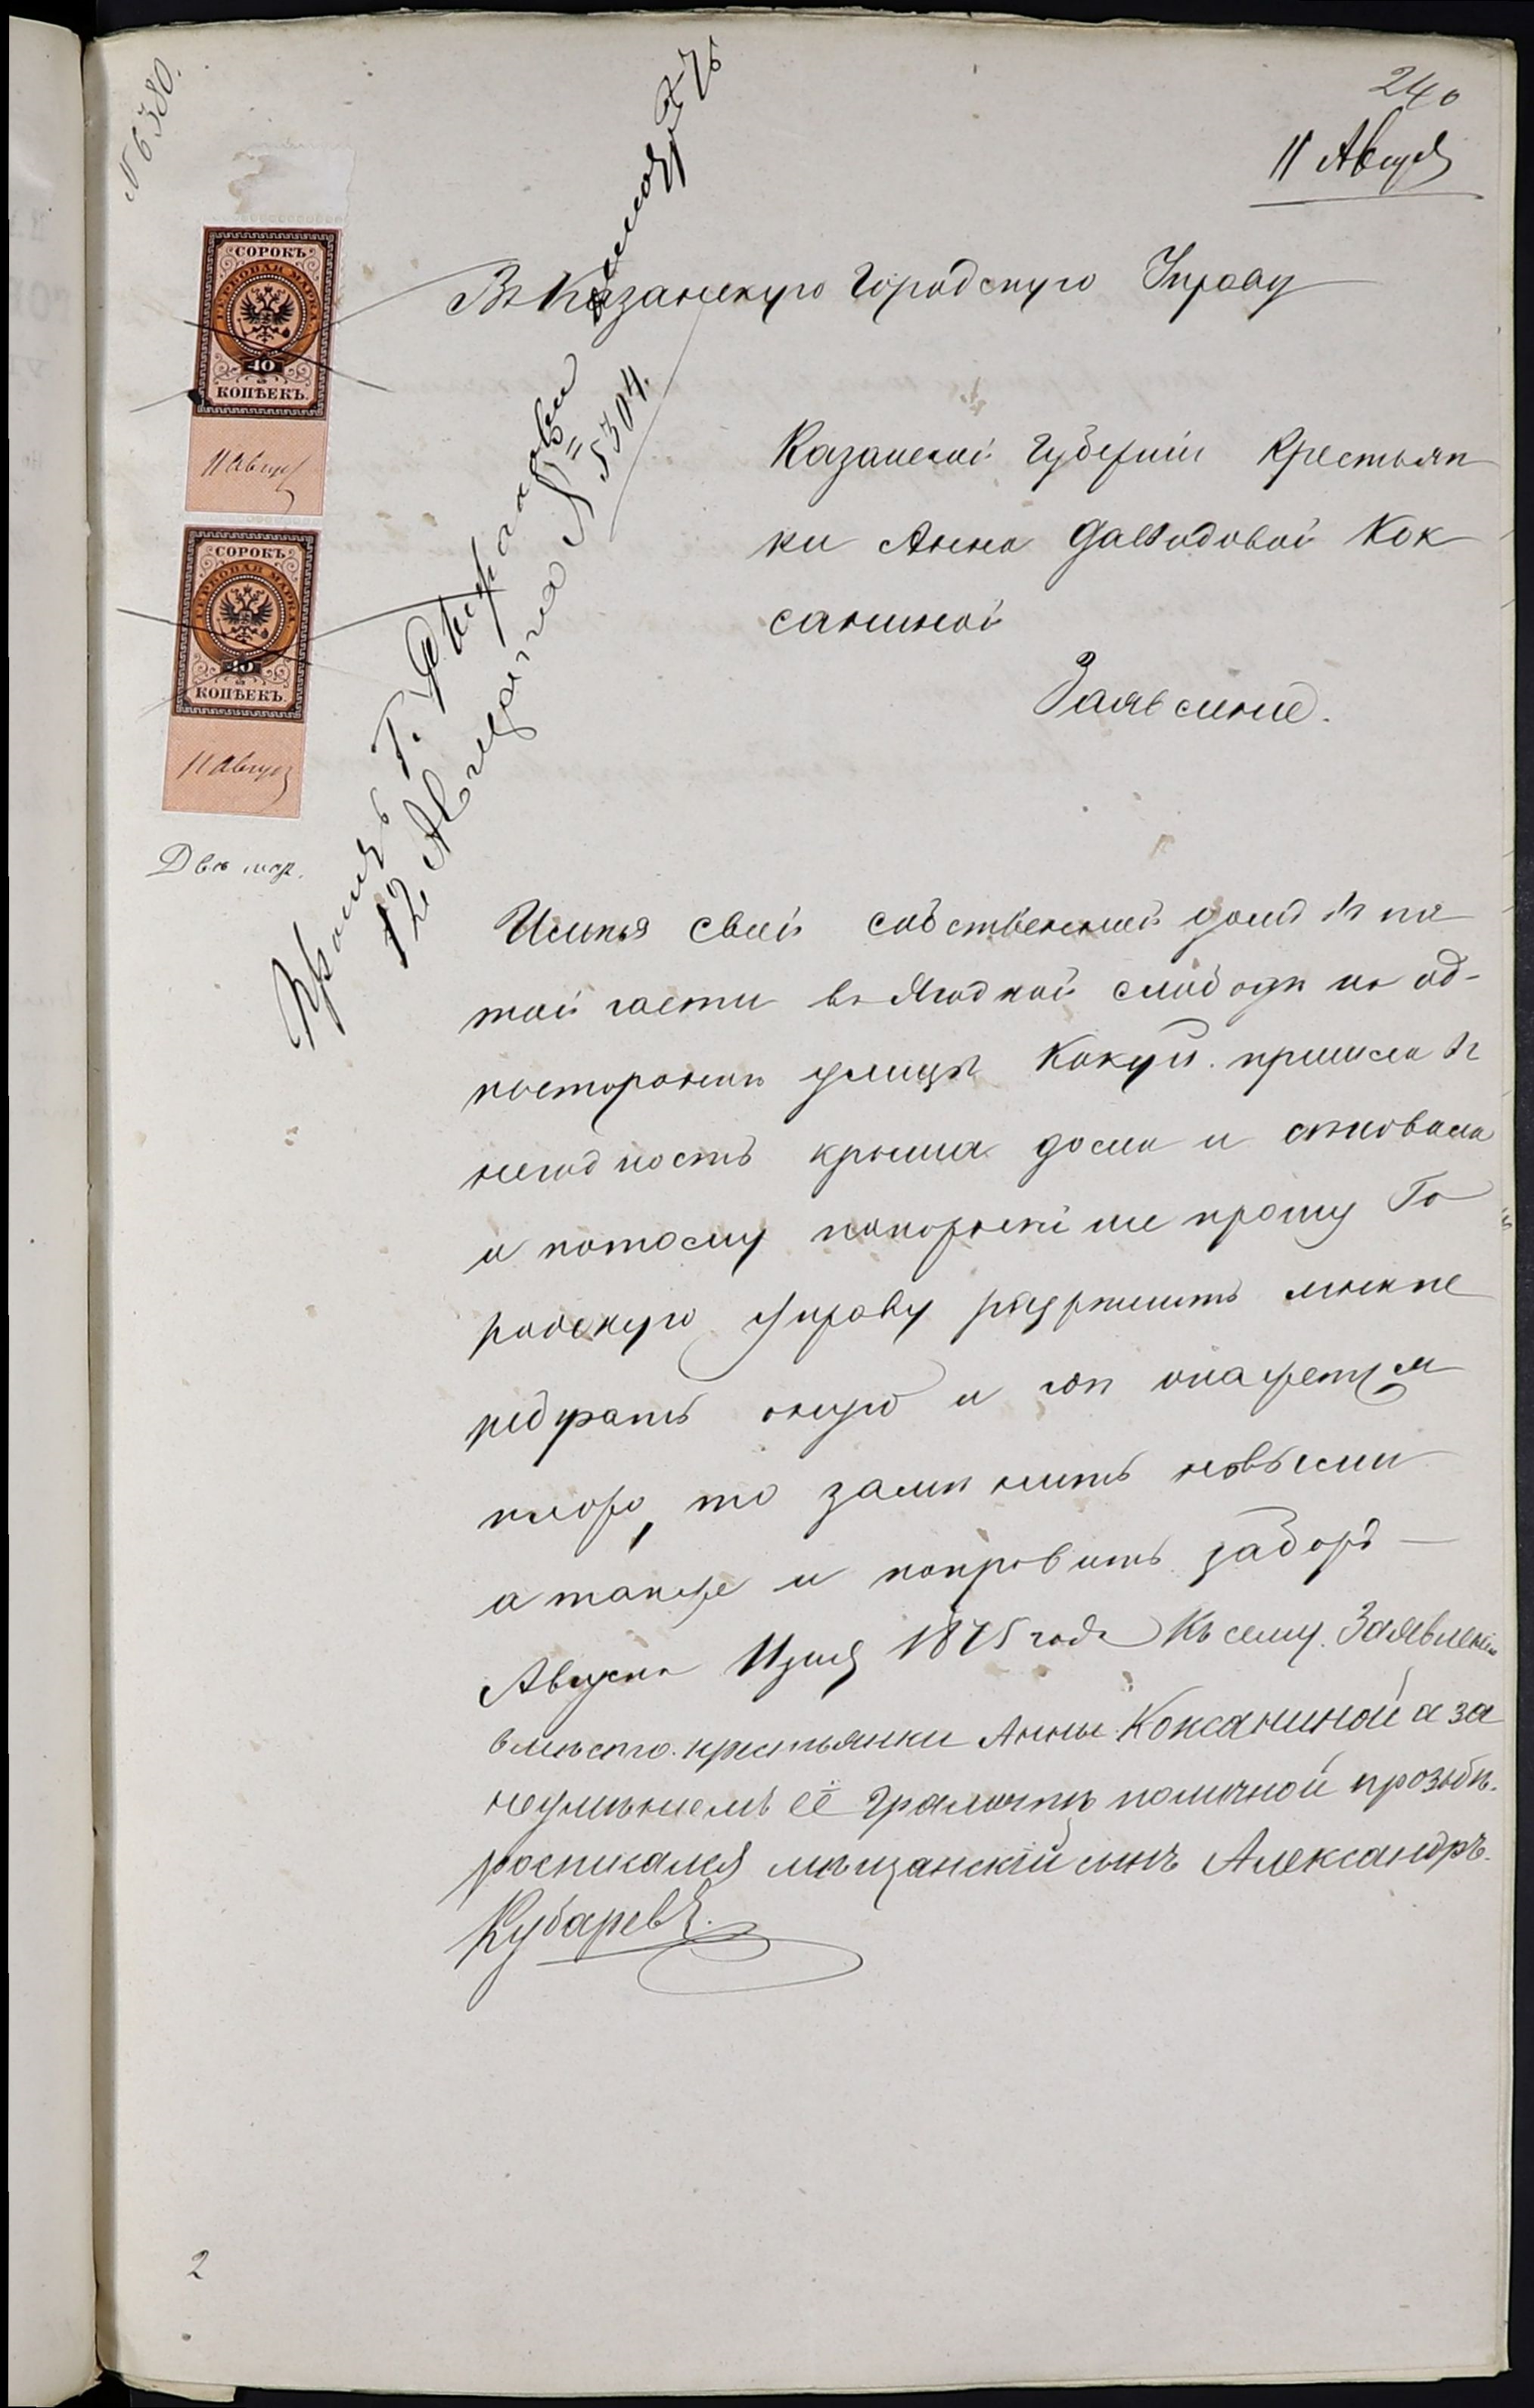 № 6380.
240
11 Август
СОРОКЪ
ГЕРБОВАЯ МАРКА
40
КОПѢЕКЪ.
11 Август
СОРОКЪ
ГЕРБОВАЯ МАРКА
40
КОПѢЕКЪ.
11 Август
Двѣ мар.
12 Августа № 5304.
Въ Казанскую Городскую Управу
Казанской Губерніи Крестьян
ки Анна Давыдовой Кок
саниной
Заявление.
Имѣя свой собственный домъ въ пя
той части въ Ягодной слободѣ на од-
посторонѣ улицы Кокуй. пришла въ
негодность крыша дома и
и потому покорнейше прошу Го
родскую Управу разрешить мнѣ пе
ребрать оную и гдѣ окажется
плохо, то заменить новыми
а также и поправить заборъ —
Августа дня 1875 года Къ сему Заявленію
вместо крестьянки Анны Коксаниной а за
неуменiемъ её грамотѣ поличной прозьбѣ
росписался мѣщанскій сынъ Александръ
Кубаревъ.
2